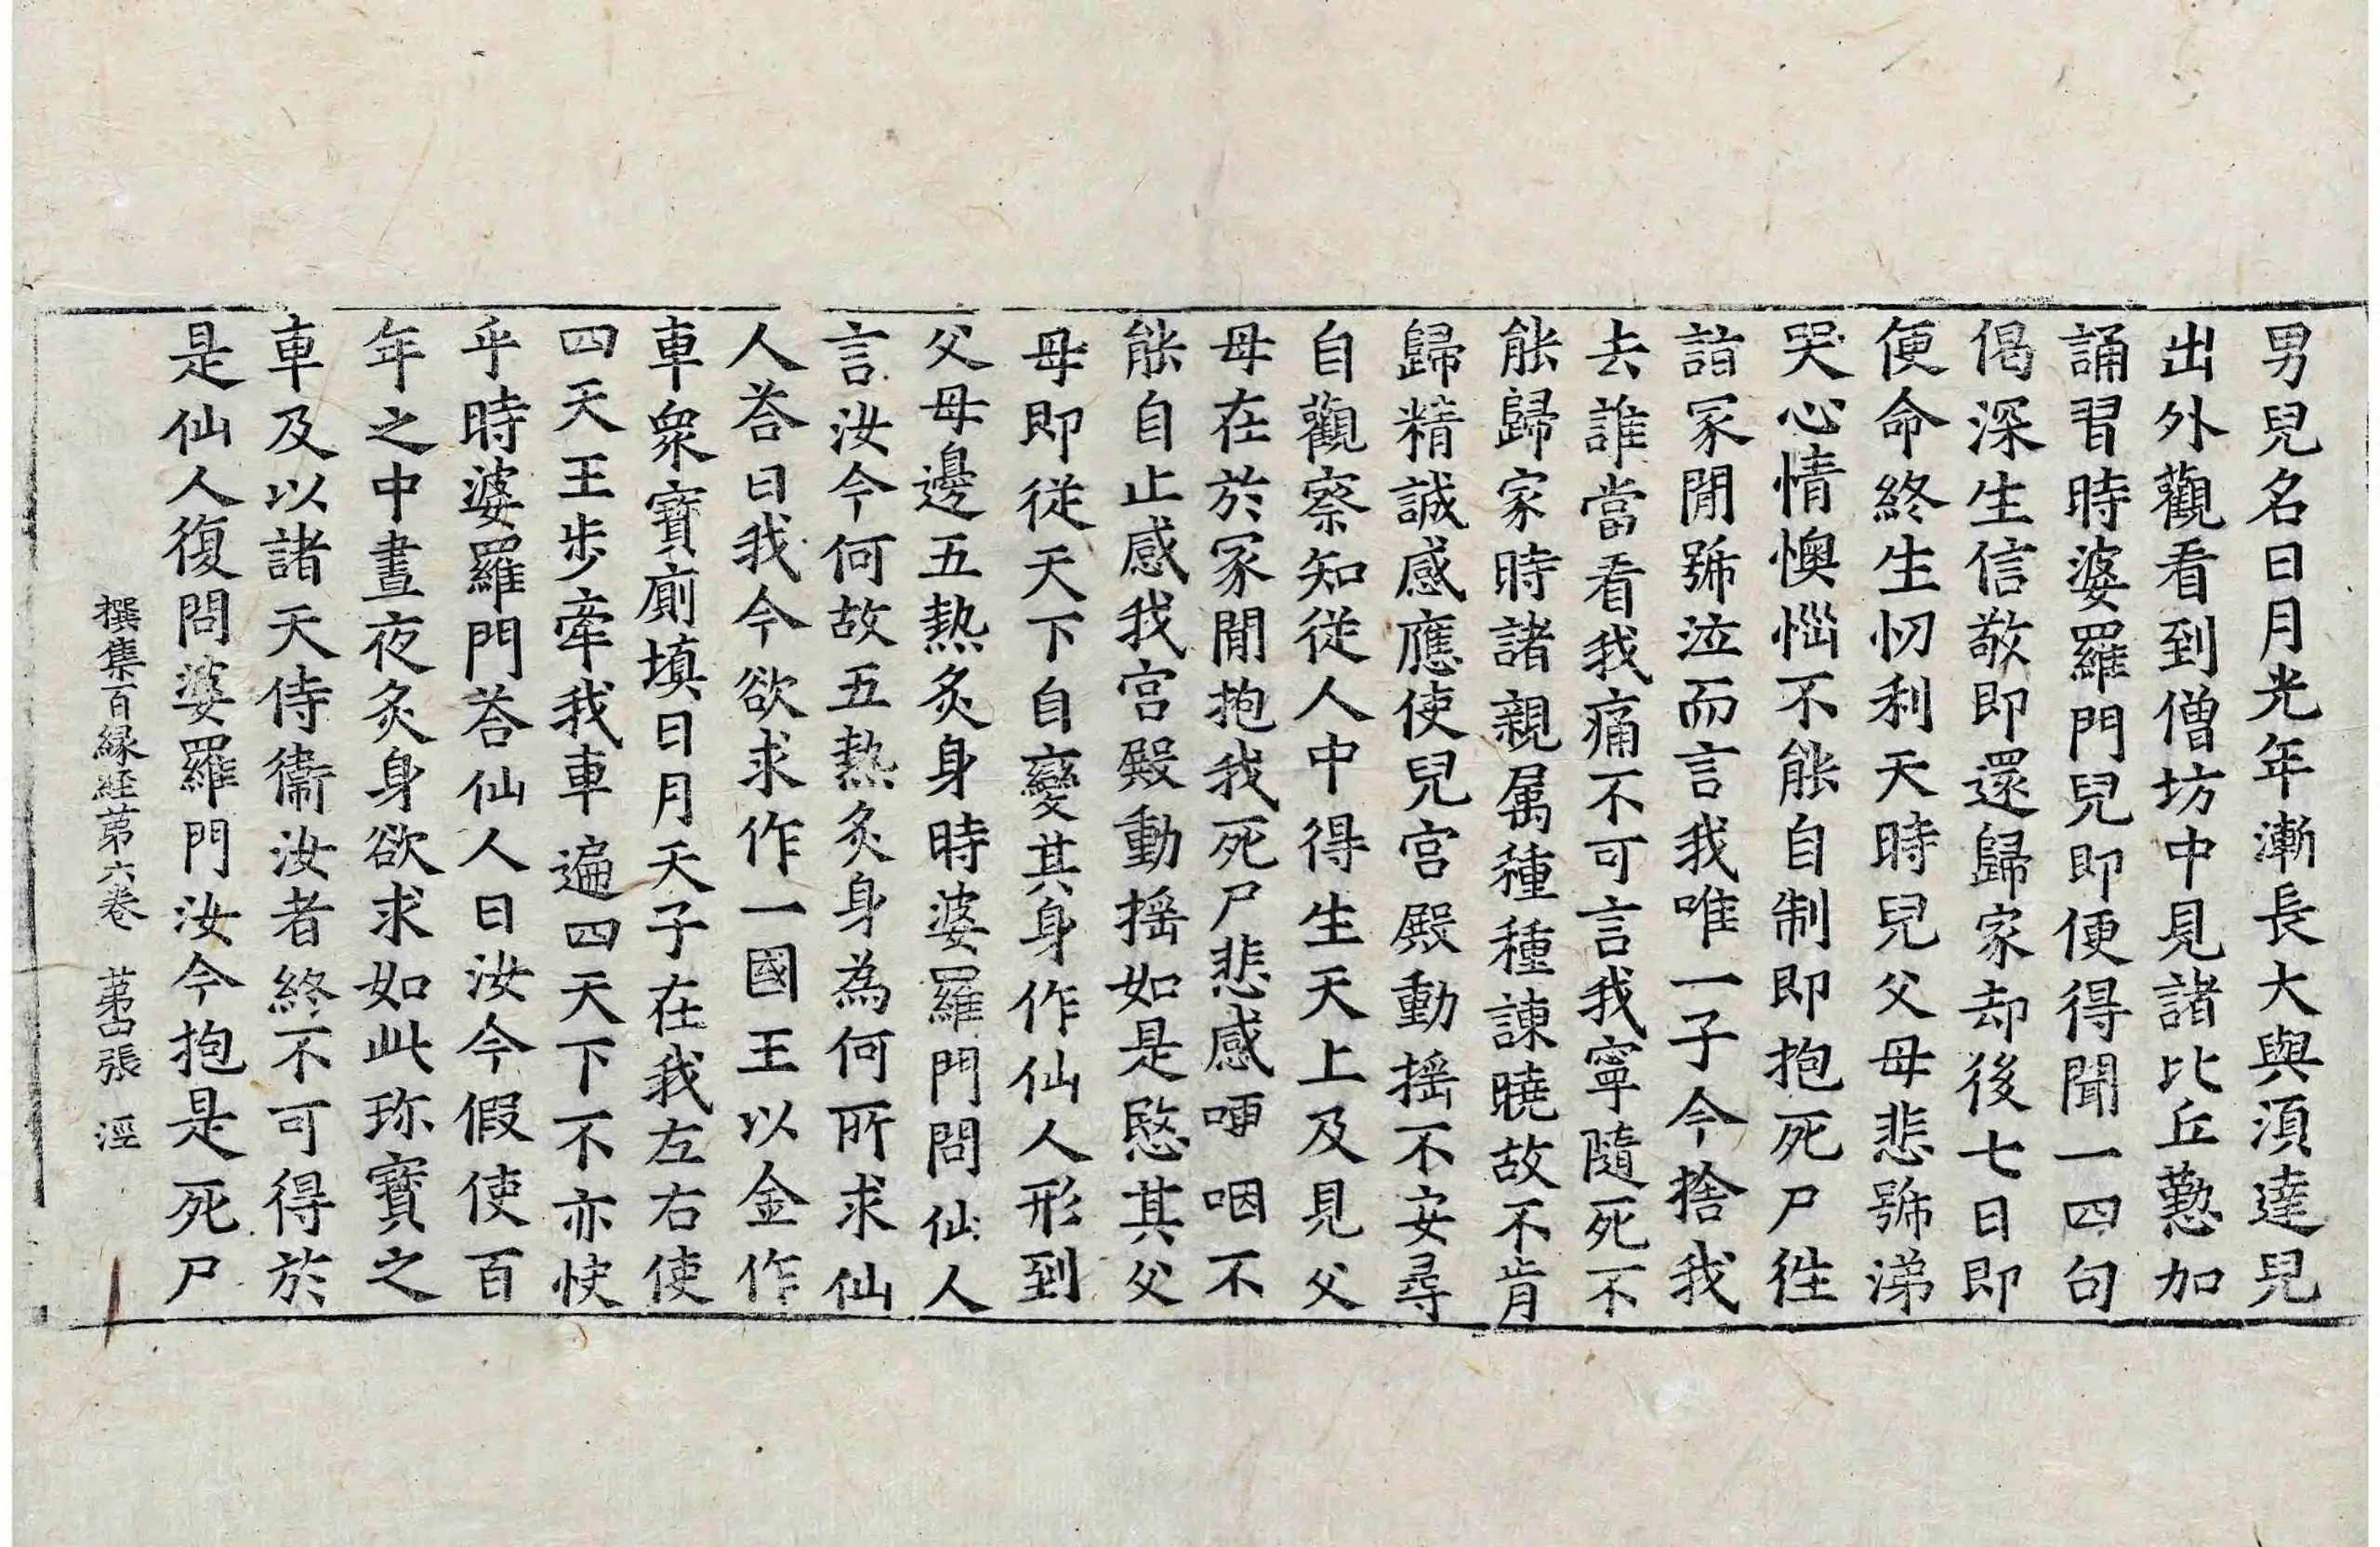 男兒名曰月光年漸長大與湏達兒
出外觀看到僧坊中見諸比丘懃加
誦習時婆羅門兒即便得聞一四句
偈深生信敬即還歸家却後七日即
便命終生忉利天時兒父母悲號涕
哭心情懊惱不能自制即抱死尸徃
詣冢間號泣而言我唯一子今捨我
去誰當看我痛不可言我寧隨死不
能歸家時諸親属種種諫曉故不肯
歸精誠感應使兒宮殿動搖不安尋
自觀察知從人中得生天上及見父
母在於冢間抱我死尸悲感哽咽不
能自止感我宮殿動搖如是愍其父
母即從天下自變其身作仙人形到
父母邊五熱炙身時婆羅門問仙人
言汝今何故五熱炙身為何所求仙
人荅曰我今欲求作一國王以金作
車衆寶廁填日月天子在我左右使
四天王步牽我車遍四天下不亦快
乎時婆羅門荅仙人曰汝今假使百
年之中晝夜炙身欲求如此珎寶之
車及以諸天侍衞汝者終不可得於
是仙人復問婆羅門汝今抱是死尸
撰集百縁経苐六卷　苐四張　涇